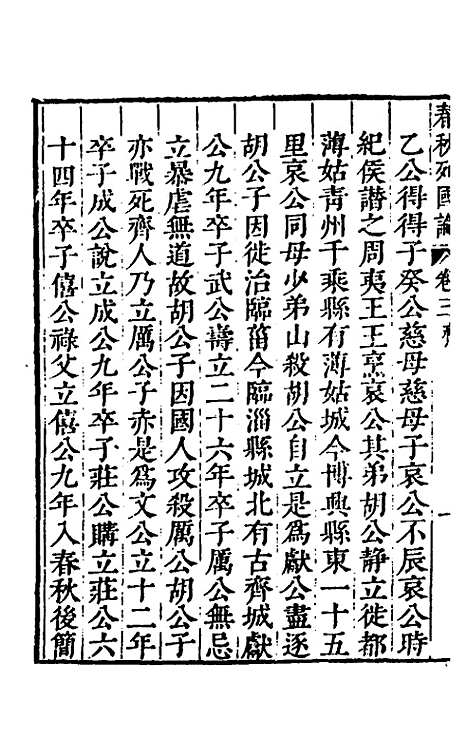 春秋列國論 卷三 齊 一
乙公得得子癸公慈母慈母子哀公不辰哀公時
紀侯譖之周夷王王烹哀公其弟胡公静立徙都
薄姑青州千乘縣有薄姑城今博興縣東一十五
里哀公同母少弟山殺胡公自立是爲獻公盡逐
胡公子因徙治臨菑今臨淄縣城北有古齊城獻
公九年卒子武公壽立二十六年卒子厲公無忌
立暴虐無道故胡公子因國人攻殺厲公胡公子
亦戰死齊人乃立厲公子赤是爲文公立十二年
卒子成公說立成公九年卒子莊公購立莊公六
十四年卒子僖公祿父立僖公九年入春秋後簡